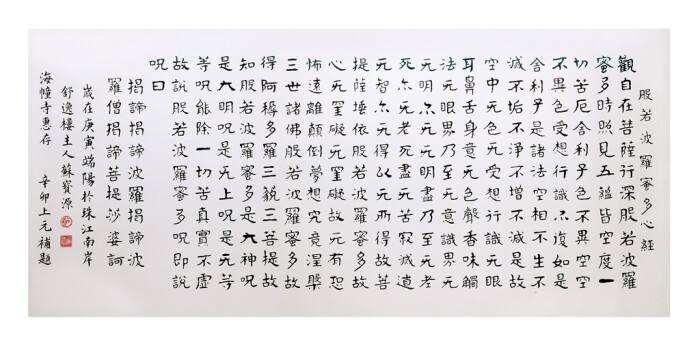 般若波羅蜜多心經
觀自在菩薩行深般若波羅
蜜多時照見五蘊皆空度一
切苦厄舍利子色不異空空
不異色受想行識亦復如是
舍利子是諸法空相不生不
滅不垢不淨不增不減是故
空中无色无受想行識无眼
耳鼻舌身意无色聲香味觸
法无眼界乃至无意識界无
无明亦无无明盡乃至无老
死亦无老死盡无苦寂滅道
无智亦无得以无所得故菩
提薩埵依般若波羅蜜多故
心无罣礙无罣礙故无有恐
怖遠離顛倒夢想究竟涅槃
三世諸佛般若波羅蜜多故
得阿耨多羅三藐三菩提故
知般若波羅蜜多是大神呪
是大明呪是无上呪是无等
等呪能除一切苦真實不虛
故說般若波羅蜜多呪即說
呪曰
揭諦揭諦波羅揭諦波
羅僧揭諦菩提沙婆訶
歲在庚寅端陽於珠江南岸
舒逸樓主人蘇寶源
海幢寺惠存 辛卯上元補題